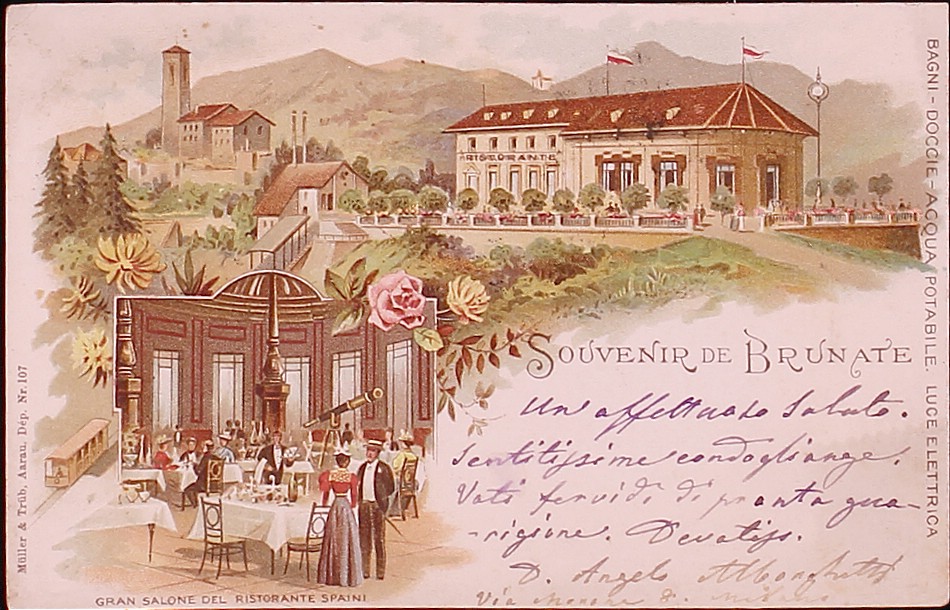 RISTORANTE
BAGNI - DOCCIE - ACQUA POTABILE. LUCE ELETTRICA
SOUVENIR DE BRUNATE
Un affettuoso saluto.
Sentitissime condoglianze.
Voti fervidi di pronta gua-
-rigione. Devotiss.
D. Angelo
Via
Müller & Trüb, Aarau, Dép. Nr. 107
GRAN SALONE DEL RISTORANTE SPAINI